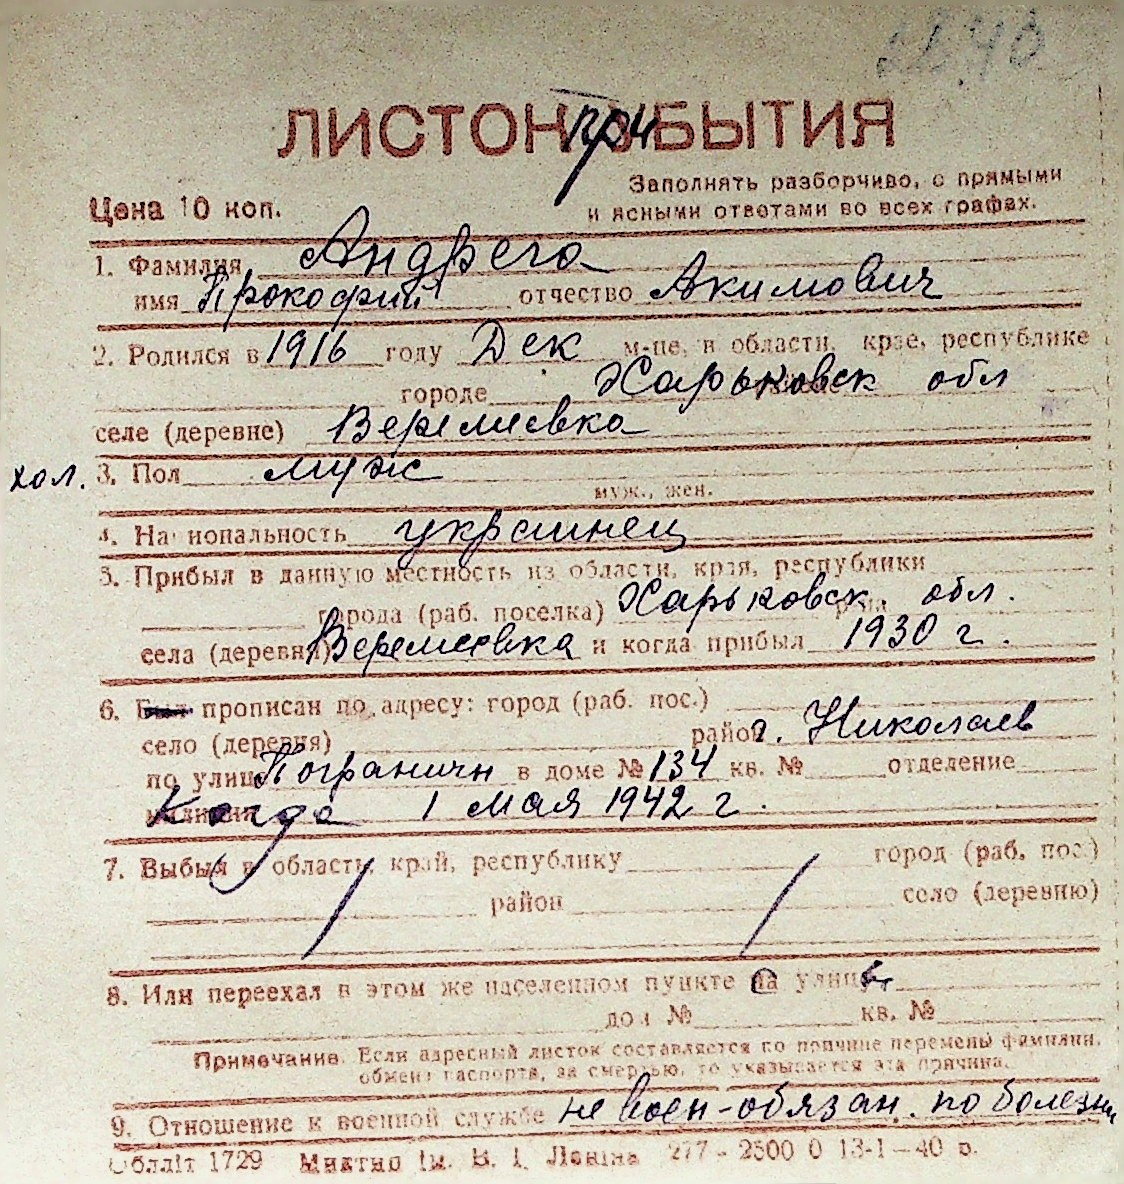 ЛИСТОК при БЫТИЯ
Заполнять разборчиво, с прямыми
Цена 10 коп. и ясными ответами во всех графах.
1. Фамилия Андрега
имя Прокофий отчество Акимович
2. Родился в 1916 году Дек м-це, в области, крае, республике
городе Харьковск обл
селе (деревне) Веремиевка
хол. 3. Пол муж
муж., жен.
4. Национальность украинец
5. Прибыл в данную местность из области, края, республики
города (раб. поселка) Харьковск обл.
села (деревни) Веремиевка и когда прибыл 1930 г.
6. прописан по адресу: город (раб. пос.)
село (деревня) район г. Николаев
по улице Погранични в доме № 134 кв. № отделение
милиции Когда 1 мая 1942 г.
7. Выбыл в область, край, республику город (раб. пос.)
район село (деревню)
8. Или переехал в этом же населенном пункте на улицу
дом № кв. №
Примечание. Если адресный листок составляется по причине перемены фамилии,
обмена паспорта, за смертью, то указывается эта причина.
9. Отношение к военной службе не воен-обязан. по болезни
Обллiт 1729 Миктно iм. В. I. Ленiна 277 - 2500 0 13-1-40 р.